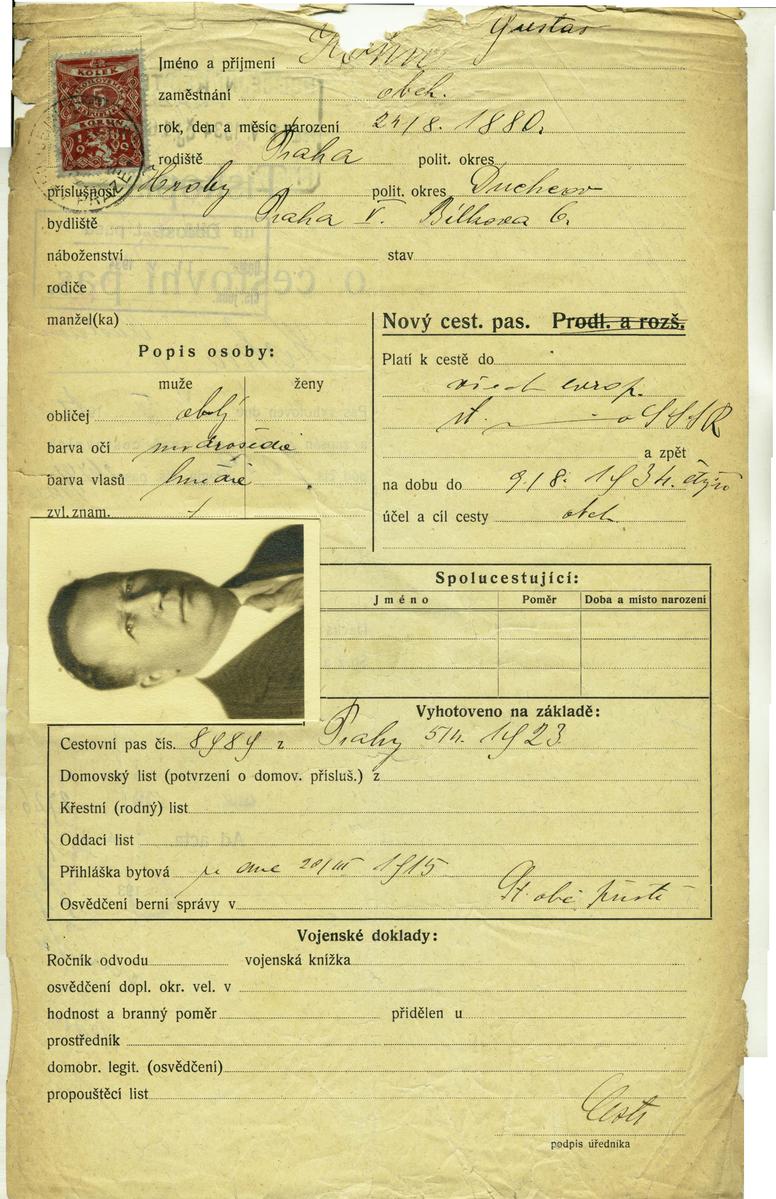 Gustav
Jméno a příjmení
zaměstnání obch.
rok, den a měsíc narození 24/8. 1880.
rodiště Praha polit. okres
příslušnost Hroby polit. okres Duchcov
bydliště Praha V. Bílkova 6.
náboženství stav
rodiče
manžel(ka)
Nový cest. pas. Prodl. a rozš.
Popis osoby:
muže ženy
obličej oblý
barva očí modrošedé
barva vlasů hnědé
zvl. znam.
Platí k cestě do
všech evrop.
st. o SSSR
a zpět
na dobu do 9/8. 1934.
účel a cíl cesty obch.
Spolucestující:
Jméno Poměr Doba a místo narození
Vyhotoveno na základě:
Cestovní pas čís. 8989 z Prahy 5/4. 1923.
Domovský list (potvrzení o domov. přísluš.) z
Křestní (rodný) list
Oddací list
Přihláška bytová ze dne 20/III 1915
Osvědčení berní správy v St. obč. zjišť.
Vojenské doklady:
Ročník odvodu vojenská knížka
osvědčení dopl. okr. vel. v
hodnost a branný poměr přidělen u
prostředník
domobr. legit. (osvědčení)
propouštěcí list
podpis úředníka
KOLEK
5
KORUN